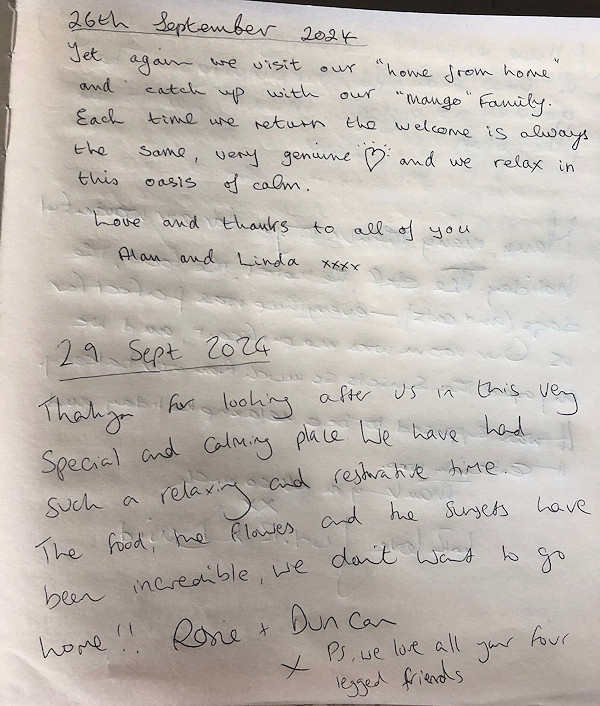 26th September 2024
Yet again we visit our "home from home"
and catch up with our "mango" Family.
Each time we return the welcome is always
the same, very genuine ♡ and we relax in
this oasis of calm.
Love and thanks to all of you
Alan and Linda xxxx
29 Sept 2024
Thankyou for looking after us in this very
Special and calming place. We have had
such a relaxing and restorative time.
The food, the flowers, and the sunsets have
been incredible, we don't want to go
home!! Rosie + Duncan
x Ps, we love all your four
legged friends